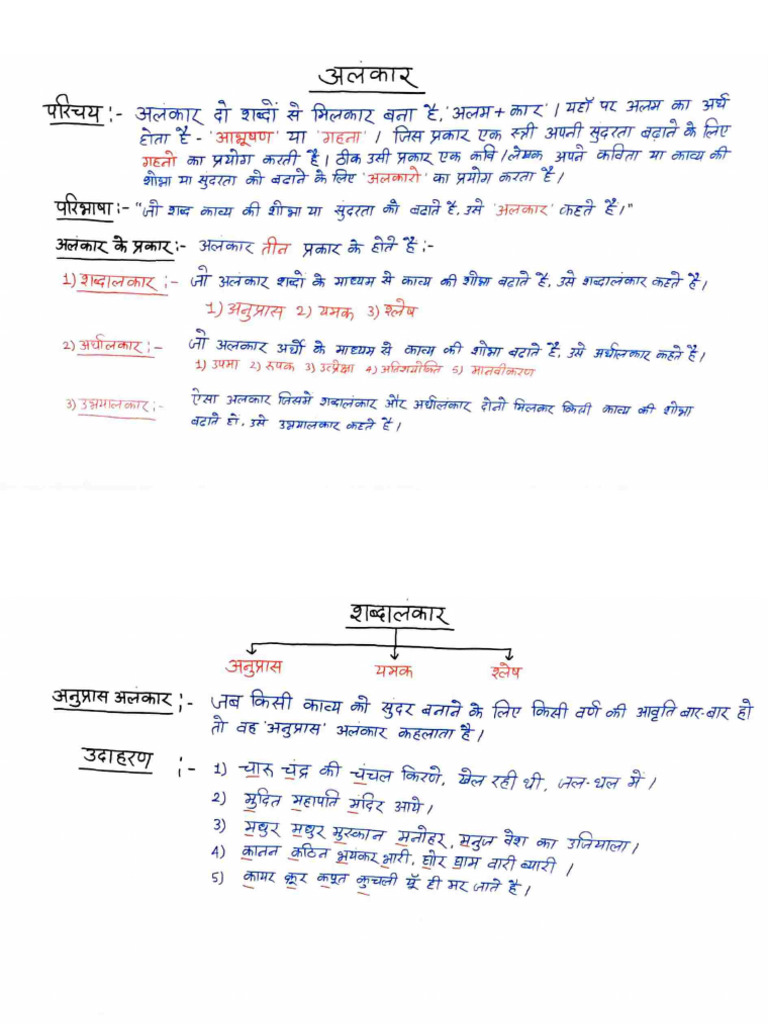 अलंकार
परिचय :- अलंकार दो शब्दों से मिलकार बना है, 'अलम + कार' । यहाँ पर अलम का अर्थ
होता है - 'आभूषण' या 'गहना' । जिस प्रकार एक स्त्री अपनी सुंदरता बढ़ाने के लिए
गहनो का प्रयोग करती है । ठीक उसी प्रकार एक कवि । लेखक अपने कविता या काव्य की
शोभा या सुंदरता को बढाने के लिए 'अलकारो' का प्रयोग करता है ।
परिभाषा :- "जो शब्द काव्य की शोभा या सुंदरता को बढाते है, उसे 'अलकार' कहते है ।"
अलंकार के प्रकार :- अलंकार तीन प्रकार के होते है :-
1) शब्दालकार :- जो अलंकार शब्दों के माध्यम से काव्य की शोभा बढाते है, उसे शब्दालंकार कहते है ।
1) अनुप्रास 2) यमक 3) श्लेष
2) अर्थालकार :- जो अलकार अर्थो के माध्यम से काव्य की शोभा बढाते है, उसे अर्थालंकार कहते है ।
1) उपमा 2) रूपक 3) उत्प्रेक्षा 4) अतिशयोक्ति 5) मानवीकरण
3) उभमालकार :- ऐसा अलकार जिसमे शब्दालंकार और अर्थालंकार दोनो मिलकर किसी काव्य की शोभा
बढाते हो, उसे उभमालकार कहते है ।
शब्दालंकार
अनुप्रास यमक श्लेष
अनुप्रास अलंकार :- जब किसी काव्य को सुंदर बनाने के लिए किसी वर्ण की आवृति बार-बार हो
तो वह 'अनुप्रास' अलंकार कहलाता है ।
उदाहरण :- 1) चारू चंद्र की चंचल किरणे, खेल रही थी, जल-थल में ।
2) मुदित महापति मंदिर आये ।
3) मधुर मधुर मुस्कान मनोहर, मनुज वेश का उजियाला ।
4) कानन कठिन भयंकर भारी, घोर घाम वारी ब्यारी ।
5) कायर क्रूर कपूत कुचली यूँ ही मर जाते है ।